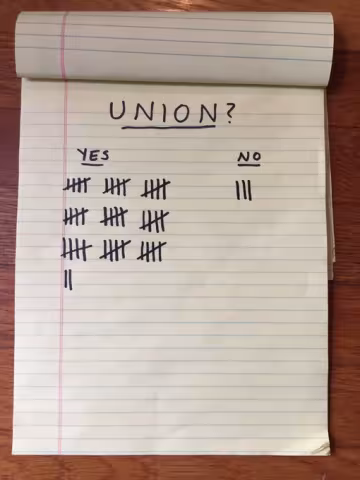 UNION?
YES NO
卌 卌 卌 |||
卌 卌 卌
卌 卌 卌
||